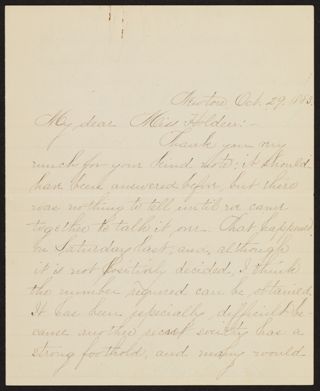 Newton, Oct. 29, 1883.
My dear Miss Holden:-
Thank you very
much for your kind note: it should
have been answered before, but there
was nothing to tell until we came
together to talk it over. That happened
on Saturday last, and, although
it is not positively decided, I think
the number required can be obtained.
It has been especially difficult be-
cause another secret society has a
strong foothold, and many would